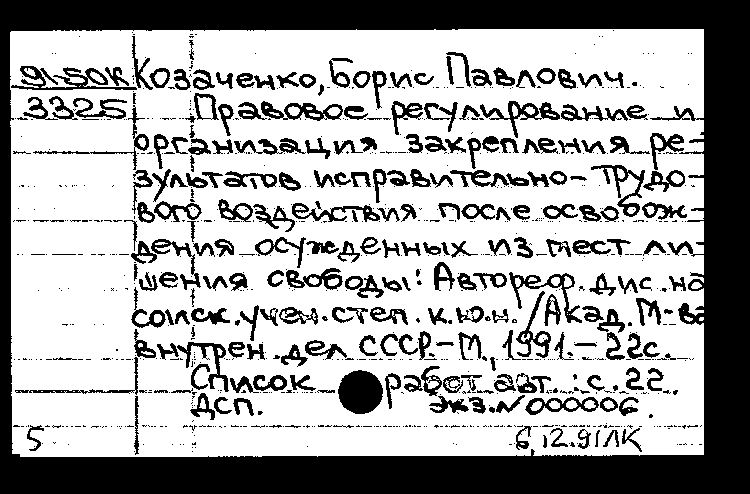 91-50К Козаченко, Борис Павлович.
3325 Правовое регулирование и
организация закрепления ре-
зультатов исправительно-трудо-
вого воздействия после освобож-
дения осужденных из мест ли-
шения свободы: Автореф. дис. на
соиск. учен. степ. к.ю.н. /Акад. М-ва
внутрен. дел СССР.-М., 1991.-22с.
Список работ авт.: с.22.
ДСП. Экз.№000006.
5 6.12.91ЛК